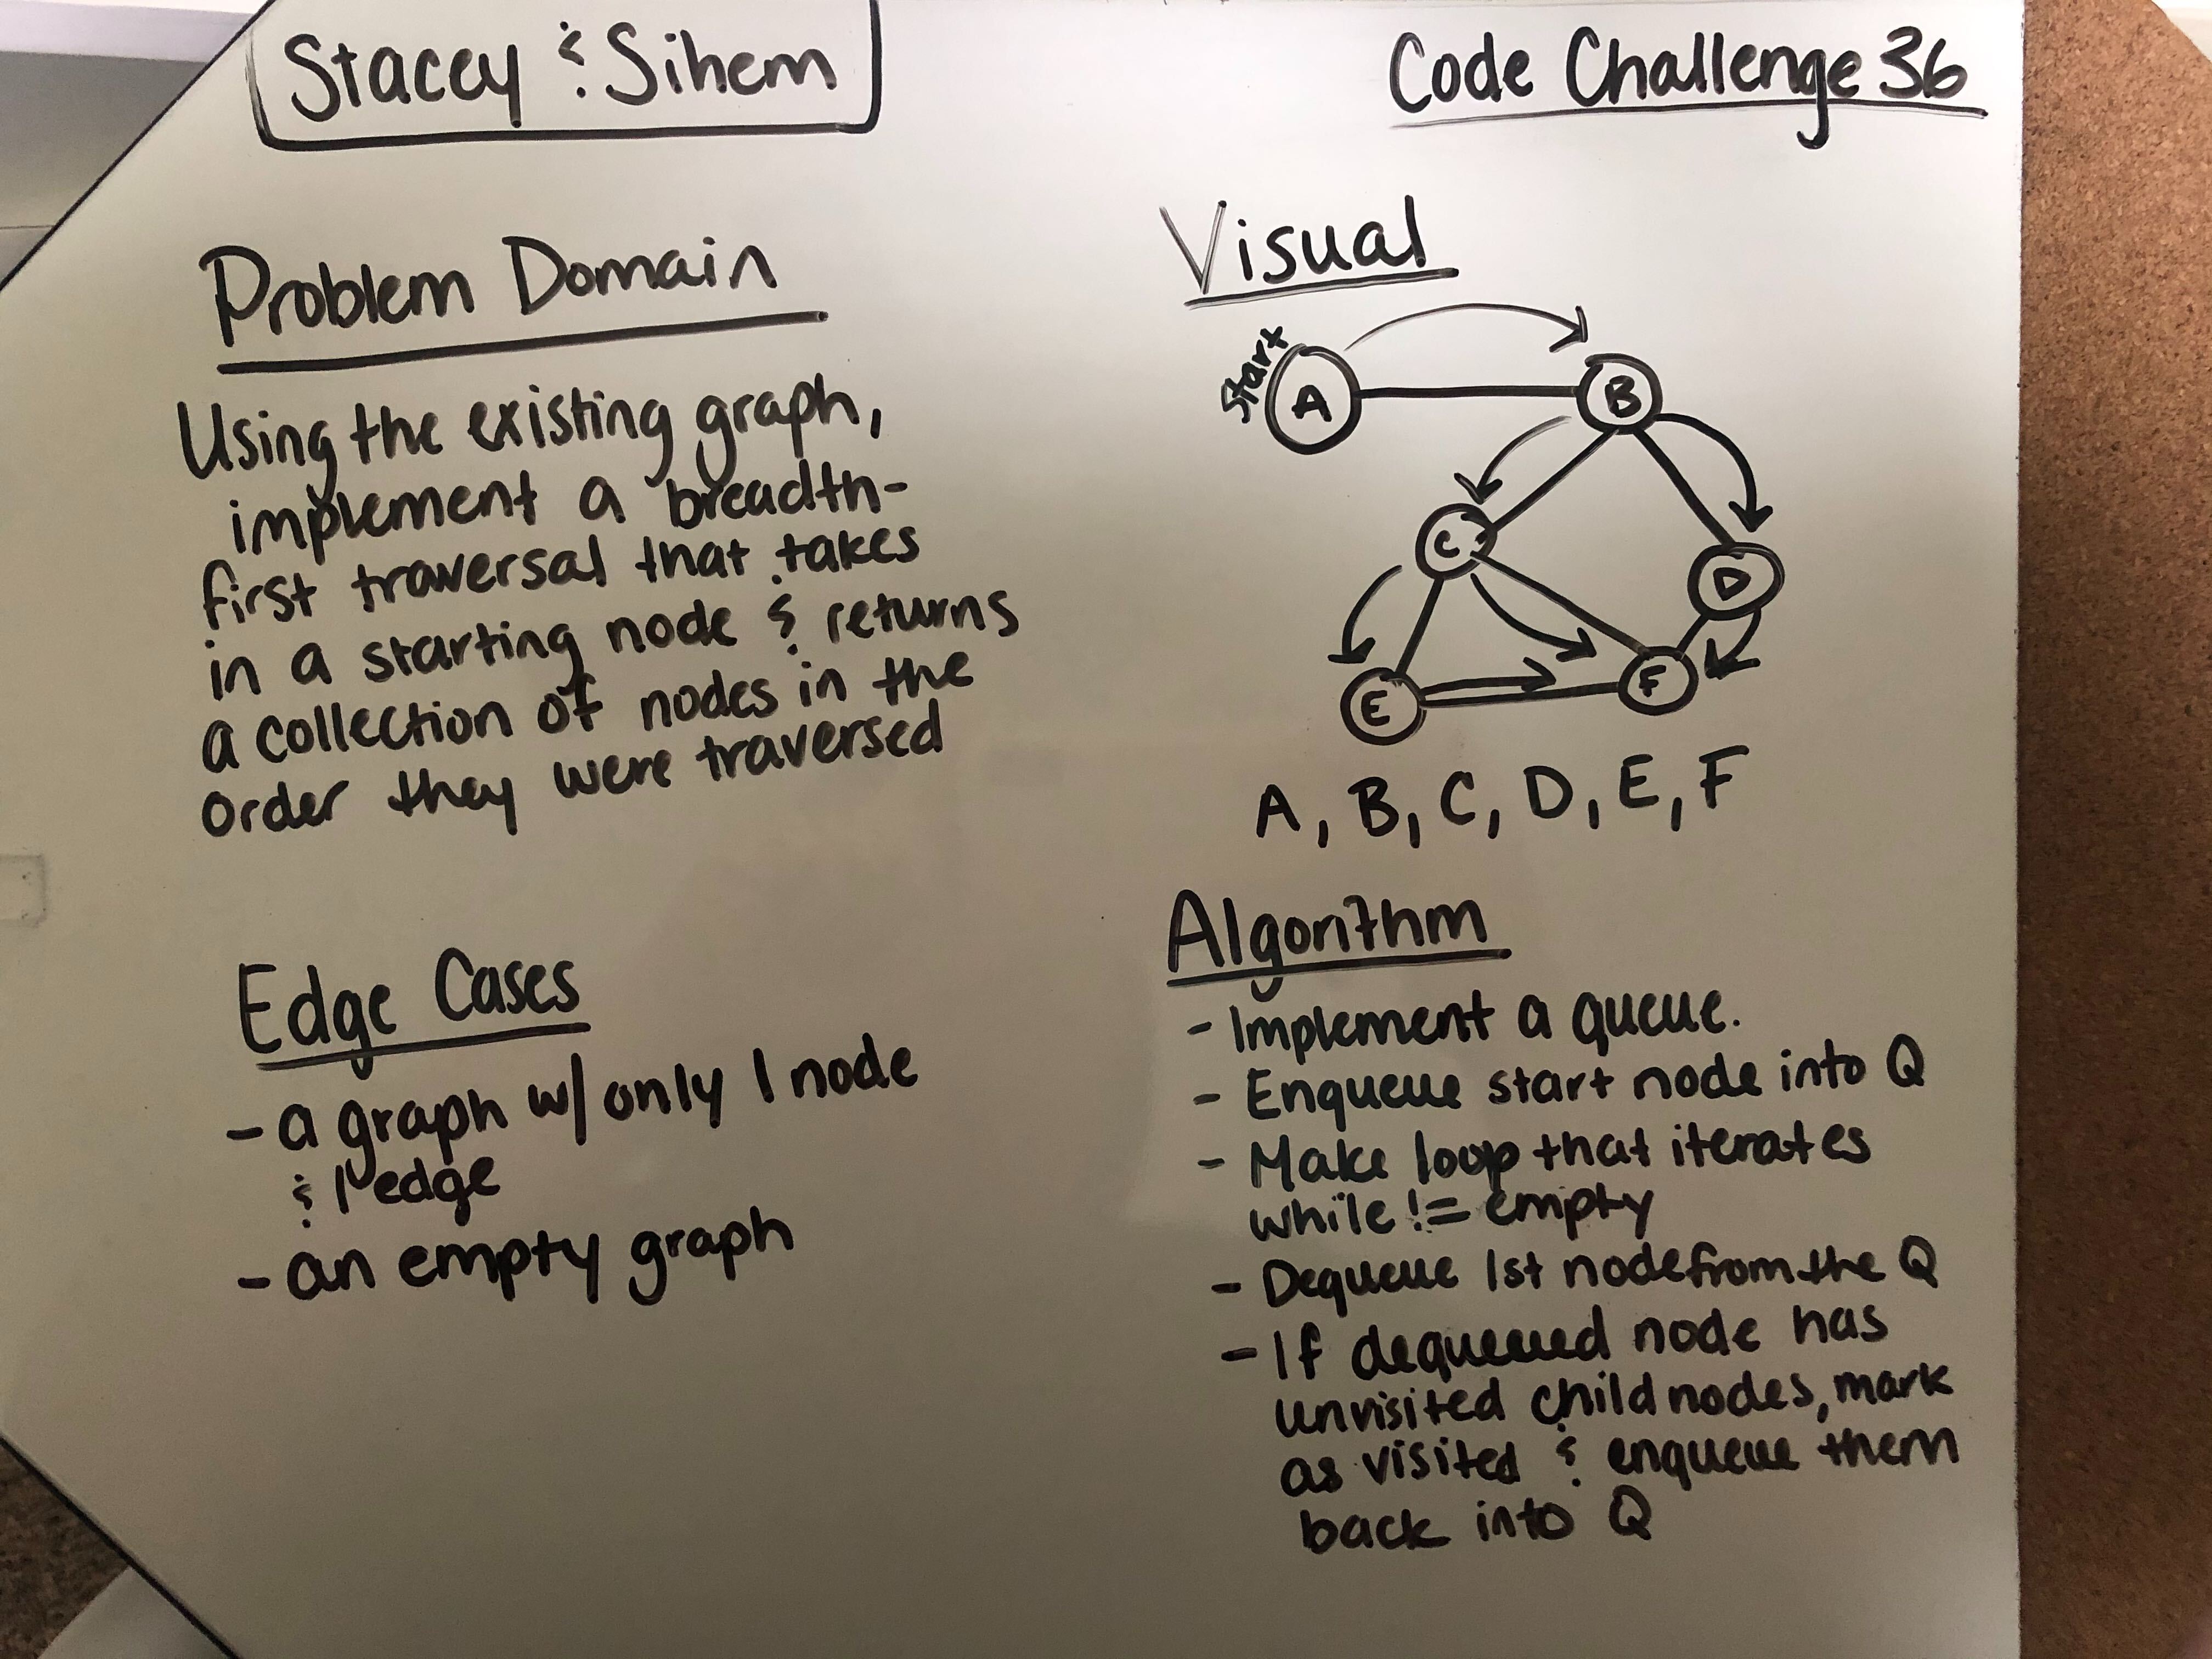 Stacey & Sihem
Code Challenge 36
Problem Domain
Using the existing graph,
implement a breadth-
first traversal that takes
in a starting node & returns
a collection of nodes in the
order they were traversed
Edge Cases
- a graph w/ only 1 node
& 1 edge
- an empty graph
Visual
Start
A
B
C
D
E
F
A, B, C, D, E, F
Algorithm
- Implement a queue.
- Enqueue start node into Q
- Make loop that iterates
while != empty
- Dequeue 1st node from the Q
- If dequeued node has
unvisited child nodes, mark
as visited & enqueue them
back into Q